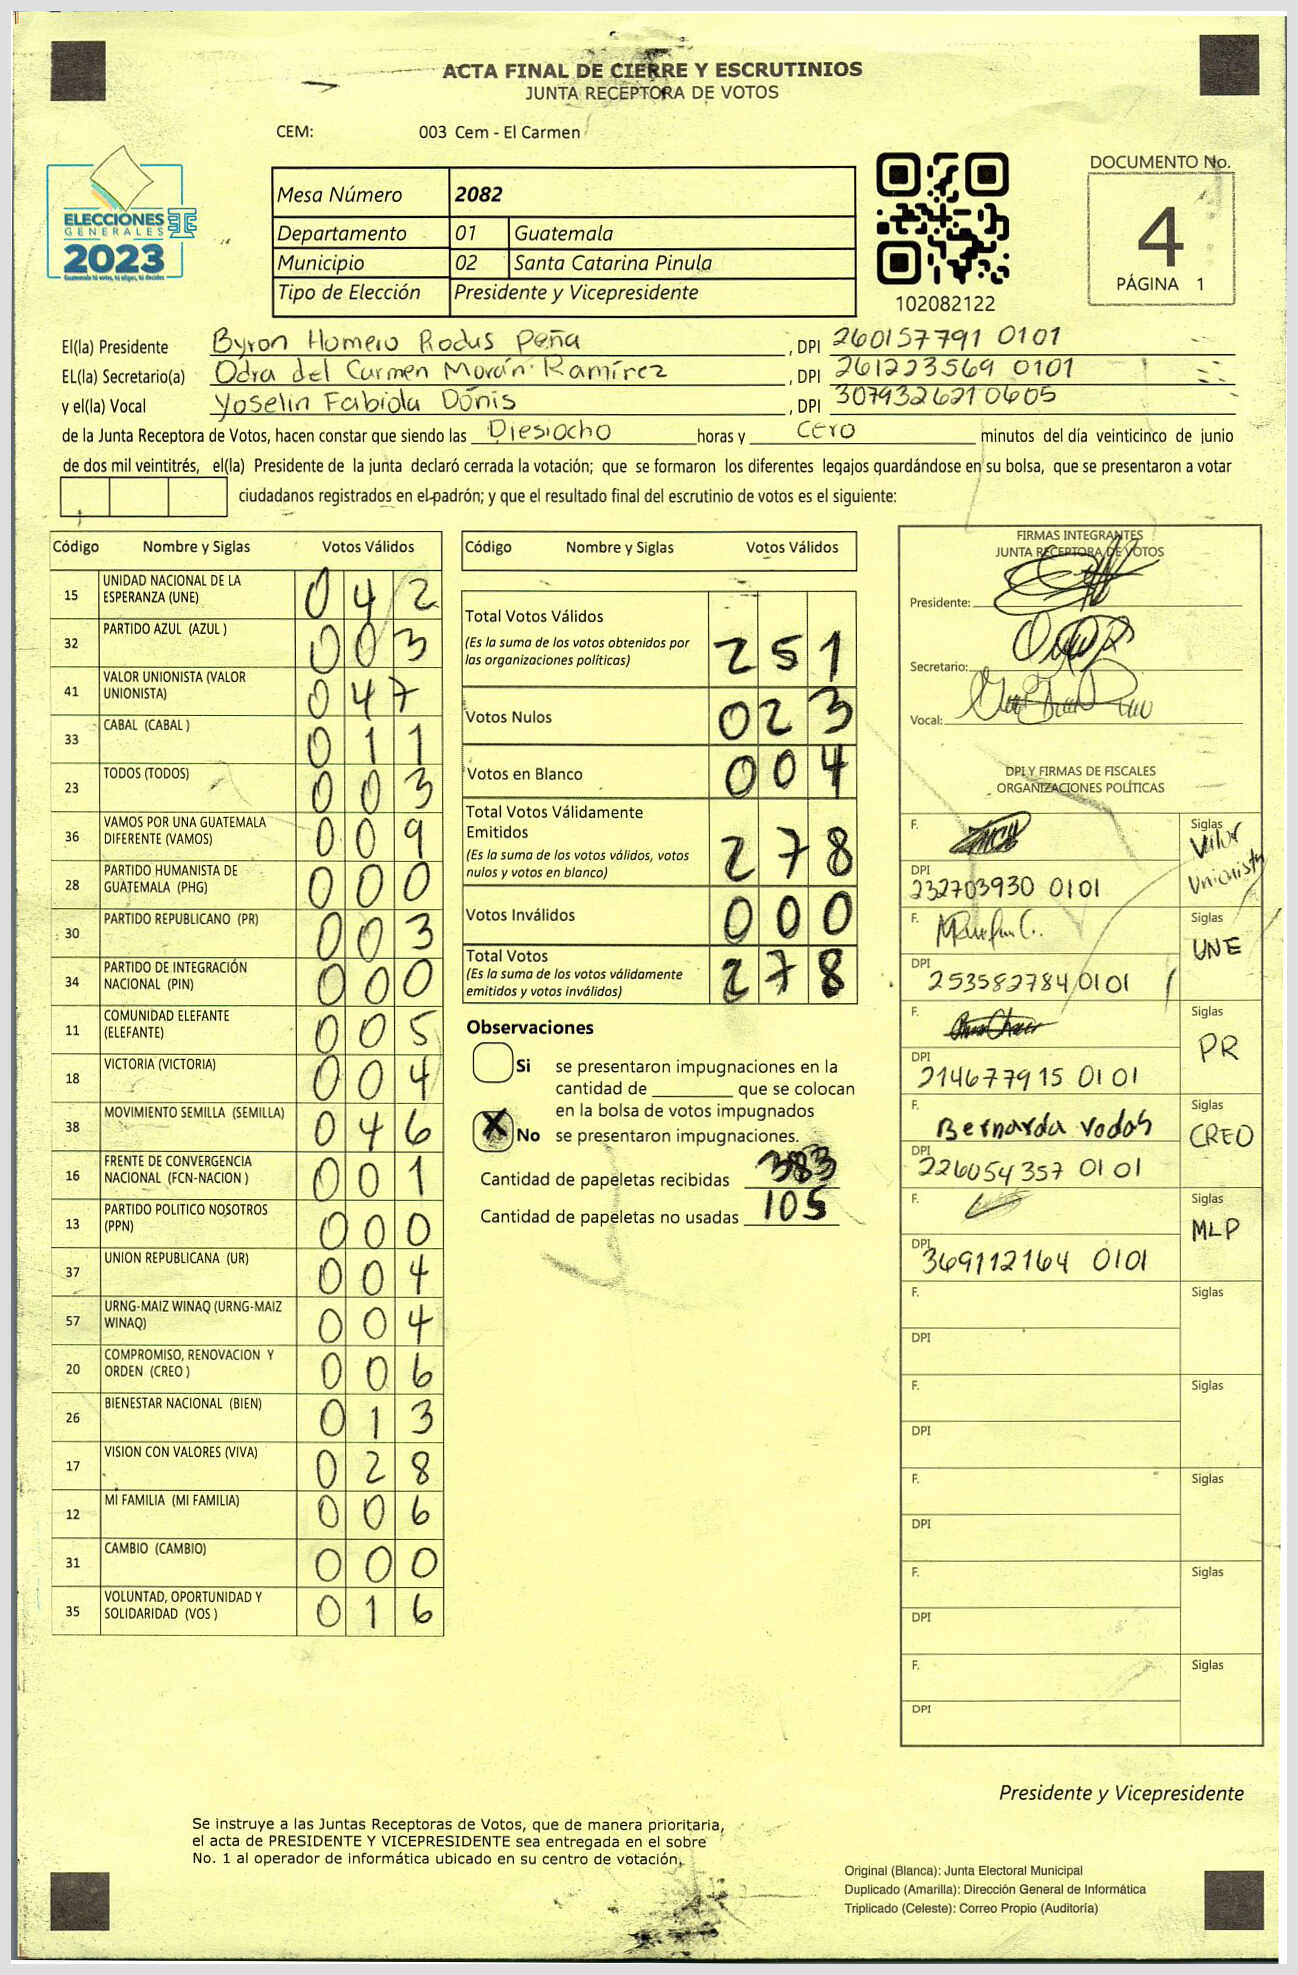 ACTA FINAL DE CIERRE Y ESCRUTINIOS
JUNTA RECEPTORA DE VOTOS
CEM: 003 Cem - El Carmen
ELECCIONES
GENERALES
2023
Guatemala tú votas, tú eliges, tú decides
Mesa Número 2082
Departamento 01 Guatemala
Municipio 02 Santa Catarina Pinula
Tipo de Elección Presidente y Vicepresidente
102082122
DOCUMENTO No.
4
PÁGINA 1
El(la) Presidente Byron Homero Rodus Peña , DPI 260157791 0101
EL(la) Secretario(a) Odra del Carmen Morán Ramírez , DPI 261223569 0101
y el(la) Vocal Yoselin Fabiola Dónis , DPI 307932621 0605
de la Junta Receptora de Votos, hacen constar que siendo las Diesiocho horas y Cero minutos del día veinticinco de junio
de dos mil veintitrés, el(la) Presidente de la junta declaró cerrada la votación; que se formaron los diferentes legajos guardándose en su bolsa, que se presentaron a votar
ciudadanos registrados en el padrón; y que el resultado final del escrutinio de votos es el siguiente:
Código Nombre y Siglas Votos Válidos
15 UNIDAD NACIONAL DE LA ESPERANZA (UNE) 0 4 2
32 PARTIDO AZUL (AZUL ) 0 0 3
41 VALOR UNIONISTA (VALOR UNIONISTA) 0 4 7
33 CABAL (CABAL ) 0 1 1
23 TODOS (TODOS) 0 0 3
36 VAMOS POR UNA GUATEMALA DIFERENTE (VAMOS) 0 0 9
28 PARTIDO HUMANISTA DE GUATEMALA (PHG) 0 0 0
30 PARTIDO REPUBLICANO (PR) 0 0 3
34 PARTIDO DE INTEGRACIÓN NACIONAL (PIN) 0 0 0
11 COMUNIDAD ELEFANTE (ELEFANTE) 0 0 5
18 VICTORIA (VICTORIA) 0 0 4
38 MOVIMIENTO SEMILLA (SEMILLA) 0 4 6
16 FRENTE DE CONVERGENCIA NACIONAL (FCN-NACION ) 0 0 1
13 PARTIDO POLITICO NOSOTROS (PPN) 0 0 0
37 UNION REPUBLICANA (UR) 0 0 4
57 URNG-MAIZ WINAQ (URNG-MAIZ WINAQ) 0 0 4
20 COMPROMISO, RENOVACION Y ORDEN (CREO ) 0 0 6
26 BIENESTAR NACIONAL (BIEN) 0 1 3
17 VISION CON VALORES (VIVA) 0 2 8
12 MI FAMILIA (MI FAMILIA) 0 0 6
31 CAMBIO (CAMBIO) 0 0 0
35 VOLUNTAD, OPORTUNIDAD Y SOLIDARIDAD (VOS ) 0 1 6
Código Nombre y Siglas Votos Válidos
Total Votos Válidos
(Es la suma de los votos obtenidos por las organizaciones políticas) 2 5 1
Votos Nulos 0 2 3
Votos en Blanco 0 0 4
Total Votos Válidamente Emitidos
(Es la suma de los votos válidos, votos nulos y votos en blanco) 2 7 8
Votos Inválidos 0 0 0
Total Votos
(Es la suma de los votos válidamente emitidos y votos inválidos) 2 7 8
Observaciones
Si se presentaron impugnaciones en la
cantidad de ________ que se colocan
en la bolsa de votos impugnados
X No se presentaron impugnaciones.
Cantidad de papeletas recibidas 383
Cantidad de papeletas no usadas 105
FIRMAS INTEGRANTES
JUNTA RECEPTORA DE VOTOS
Presidente:
Secretario:
Vocal:
DPI Y FIRMAS DE FISCALES
ORGANIZACIONES POLÍTICAS
F. Siglas Valor Unionista
DPI 232703930 0101
F. Siglas UNE
DPI 253582784 0101
F. Siglas PR
DPI 214677915 0101
F. Bernarda Vodas Siglas CREO
DPI 226054357 0101
F. Siglas MLP
DPI 369112164 0101
F. Siglas
DPI
F. Siglas
DPI
F. Siglas
DPI
F. Siglas
DPI
F. Siglas
DPI
Presidente y Vicepresidente
Se instruye a las Juntas Receptoras de Votos, que de manera prioritaria,
el acta de PRESIDENTE Y VICEPRESIDENTE sea entregada en el sobre
No. 1 al operador de informática ubicado en su centro de votación.
Original (Blanca): Junta Electoral Municipal
Duplicado (Amarilla): Dirección General de Informática
Triplicado (Celeste): Correo Propio (Auditoría)